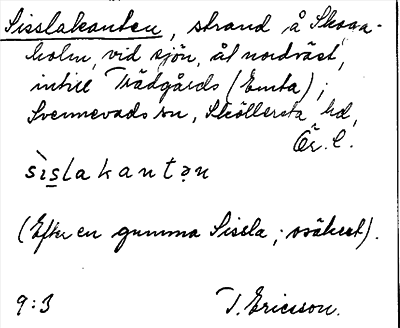 Sisslakanten, strand å Skaga-
holm, vid sjön, åt nordväst,
intill Trädgårds (Emta);
Svennevads sn, Sköllersta hd,
Ör. l.
sìslakantən
(Efter en gumma Sissla; osäkert).
9:3 T. Ericsson.